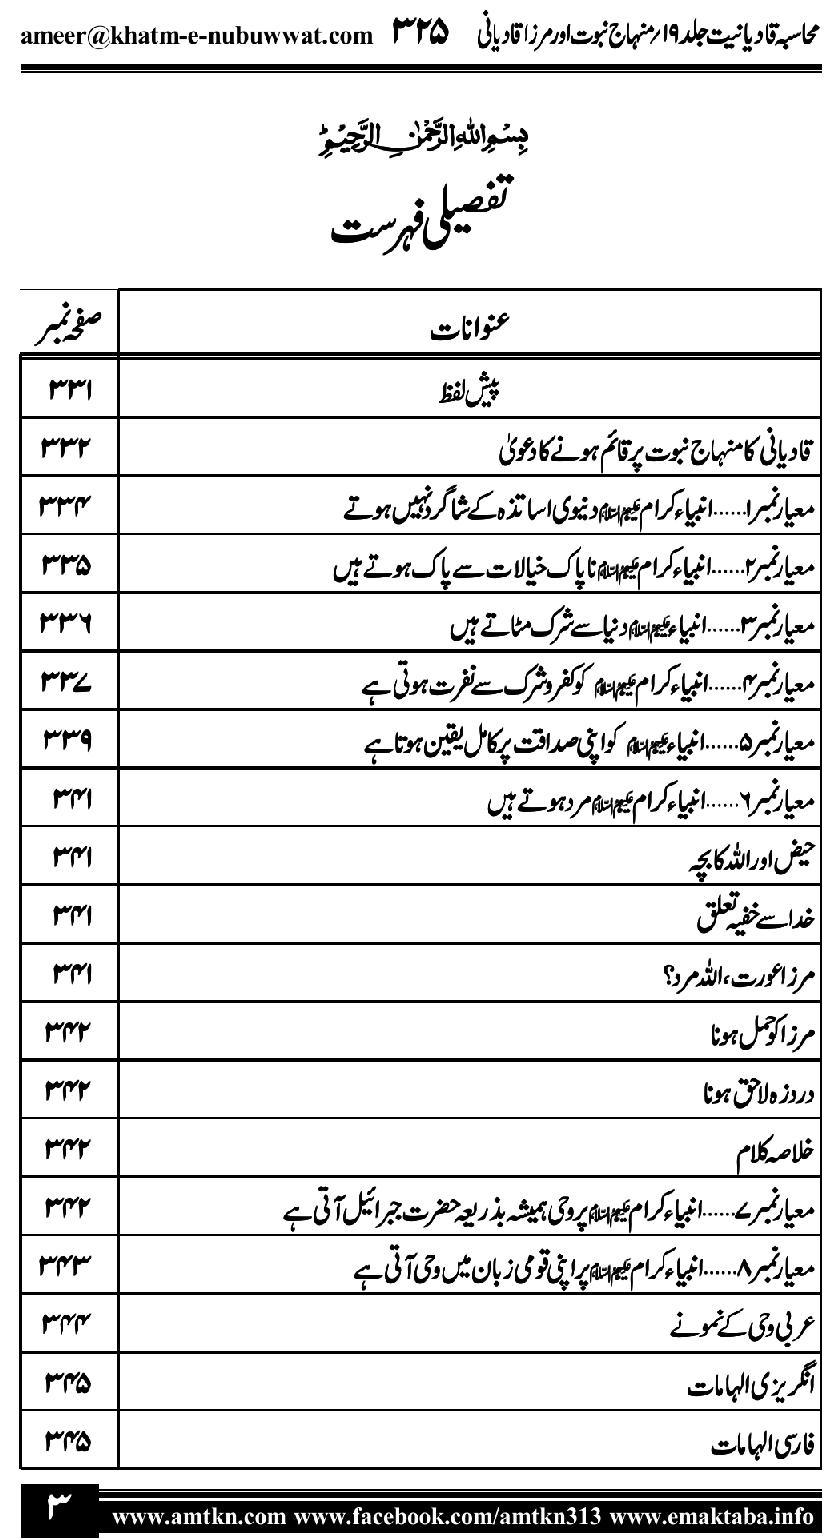 محاسبہ قادیانیت جلد ۱۹/ منہاج نبوت اور مرزا قادیانی ۳۲۵ ameer@khatm-e-nubuwwat.com
بِسْمِ اللہِ الرَّحْمٰنِ الرَّحِیْمِ
تفصیلی فہرست
عنوانات صفحہ نمبر
پیش لفظ ۳۳۱
قادیانی کا منہاج نبوت پر قائم ہونے کا دعویٰ ۳۳۲
معیار نمبر ۱......انبیاء کرام علیہم السلام دنیوی اساتذہ کے شاگرد نہیں ہوتے ۳۳۴
معیار نمبر ۲......انبیاء کرام علیہم السلام ناپاک خیالات سے پاک ہوتے ہیں ۳۳۵
معیار نمبر ۳......انبیاء علیہم السلام دنیا سے شرک مٹاتے ہیں ۳۳۶
معیار نمبر ۴......انبیاء کرام علیہم السلام کو کفر و شرک سے نفرت ہوتی ہے ۳۳۷
معیار نمبر ۵......انبیاء علیہم السلام کو اپنی صداقت پر کامل یقین ہوتا ہے ۳۳۹
معیار نمبر ۶......انبیاء کرام علیہم السلام مرد ہوتے ہیں ۳۴۱
حیض اور اللہ کا بچہ ۳۴۱
خدا سے خفیہ تعلق ۳۴۱
مرزا عورت، اللہ مرد؟ ۳۴۱
مرزا کو حمل ہونا ۳۴۲
دردزہ لاحق ہونا ۳۴۲
خلاصہ کلام ۳۴۲
معیار نمبر ۷......انبیاء کرام علیہم السلام پر وحی ہمیشہ بذریعہ حضرت جبرائیل آتی ہے ۳۴۲
معیار نمبر ۸......انبیاء کرام علیہم السلام پر اپنی قومی زبان میں وحی آتی ہے ۳۴۳
عربی وحی کے نمونے ۳۴۴
انگریزی الہامات ۳۴۵
فارسی الہامات ۳۴۵
۳ www.amtkn.com www.facebook.com/amtkn313 www.emaktaba.info